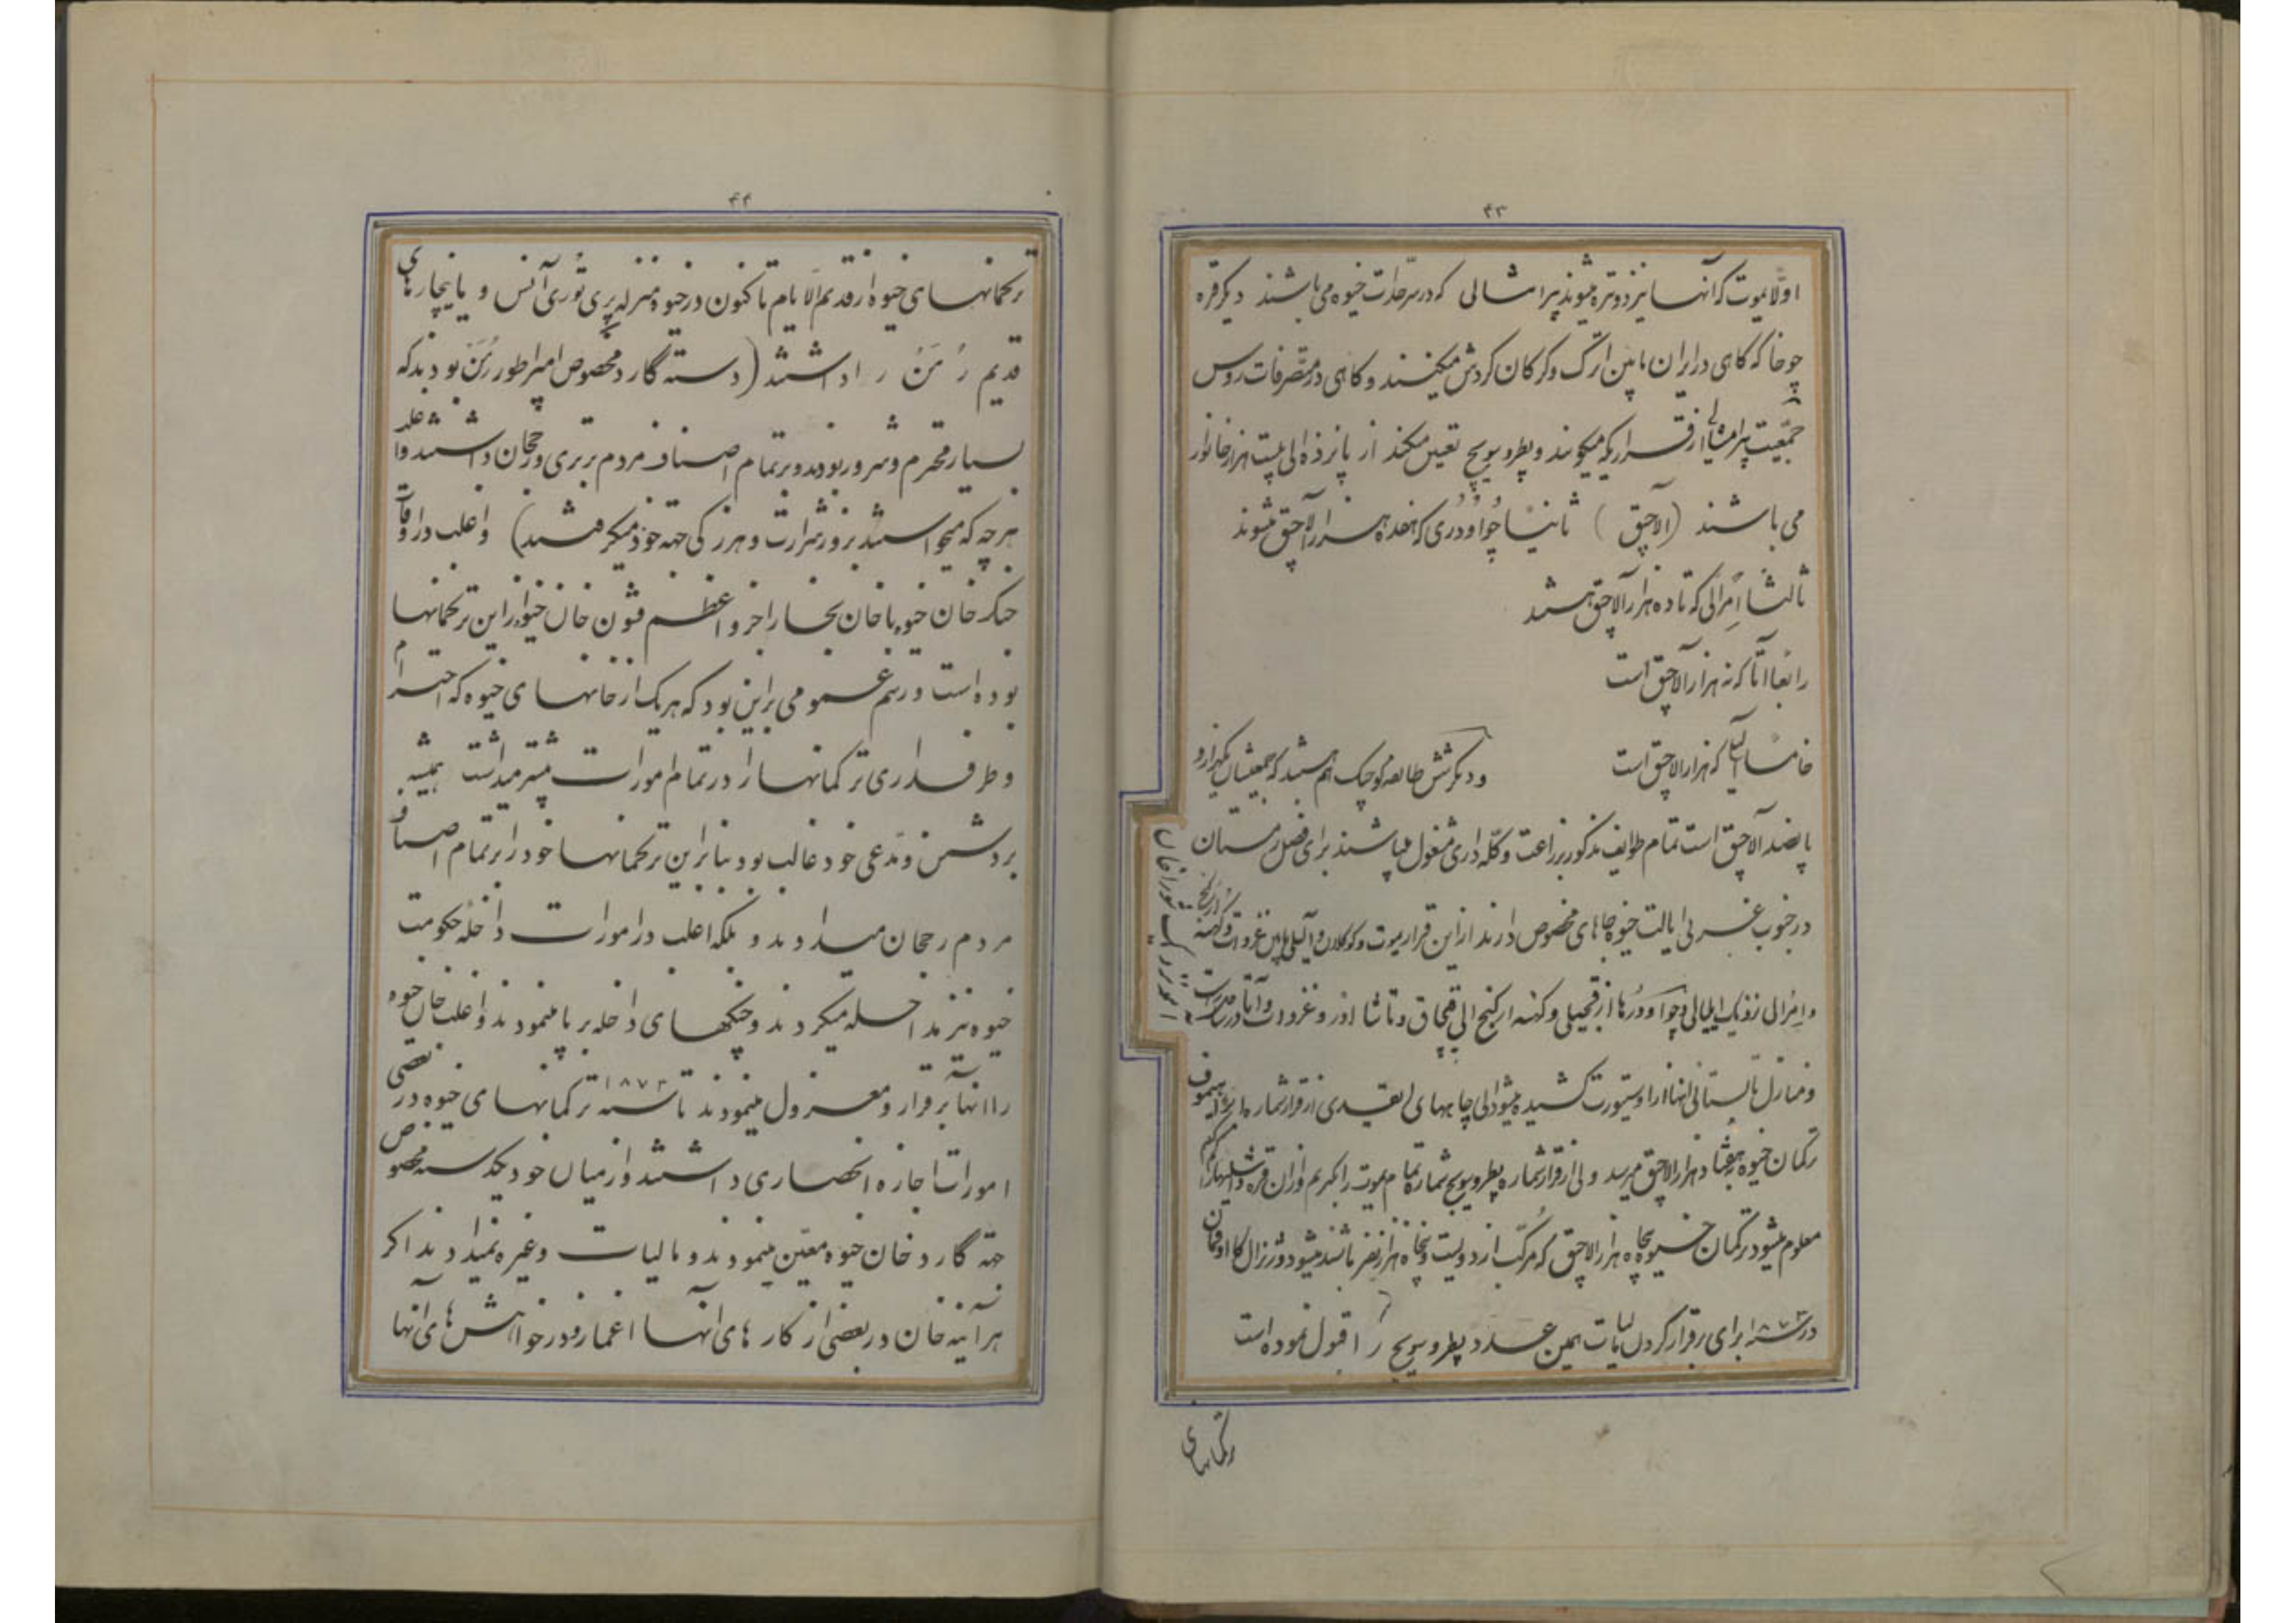 ۴۳
اولا یموت که آنها نیز دو تیره میشوند بیرامشالی که در سرحدات خیوه می باشند دیگر قره
چوخا که گاهی در ایران مابین اترک و گرگان گردش میکنند و گاهی در متصرفات روس
جمعیت بیرامشالی از قراریکه میگویند و پطرویویچ تعیین میکند از پانزده الی بیست هزار خانوار
می باشند (آلاچق) ثانیا چواودری که هفده هزار آلاچق میشوند
ثالثا امرالی که تا ده هزار آلاچق هستند
رابعا اتا که نه هزار آلاچق است
خامسا که هزار آلاچق است و دیگر شش طایفه کوچک هم هستند که جمعیتشان یکهزار و
پانصد آلاچق است تمام طوایف مذکور بزراعت و گله داری مشغول میباشند برای فصل زمستان
در جنوب غربی ایالت خیوه جاهای مخصوص دارند از این قرار یموت و کوکلان و مابین غزوات و کهنه اورگنج
و امرالی نزدیک ایلیالی و چواودورها از قجیلی و کهنه ارکنج الی قپچاق و تاشااوز و غزوات و آتا در
و منازل تابستانی اینها از اوستیورت کشیده میشود الی چاههای از قرار شماره
ترکمان خیوه بهفتاد هزار آلاچق میرسد ولی از قرار شماره پطرویویچ شماره تمام یموت را بگیریم و از آن قره کم کنیم
معلوم میشود ترکمان خیوه پنجاه هزار آلاچق که مرکب از دویست و پنجاه هزار نفر باشند میشود و ژنرال کااوفمان
در سنه ۱۸۷۳ برای برقرار کردن مالیات همین عدد پطرویویچ را قبول نموده است
ترکمانهای
۴۴
ترکمانهای خیوه از قدیم الایام تاکنون در خیوه منزله پری توری آنس و یا نیچارهای
قدیم رمن را داشتند (دسته گارد مخصوص امپراطور رمن بودند که
بسیار محترم و سرور بودند و بر تمام اصناف مردم برتری و رجحان داشتند و
هر چه که میخواستند بزور شرارت و هرزگی جهة خود میگرفتند) و اغلب در اوقات
جنگ خان خیوه با خان بخارا جزو اعظم قشون خان خیوه از این ترکمانها
بوده است و رسم عمومی بر این بود که هر یک از خانهای خیوه که احترام
و طرفداری ترکمانها را در تمام امورات بیشتر میداشت همیشه
بر دشمن و مدعی خود غالب بود بنا بر این ترکمانها خود را بر تمام اصناف
مردم رجحان میدادند و بلکه اغلب در امورات داخله حکومت
خیوه نیز مداخله میکردند و جنگهای داخله بر پا مینمودند و اغلب خان خیوه
را آنها برقرار و معزول مینمودند تا سنه ۱۸۷۳ ترکمانهای خیوه در بعضی
امورات اجازه انحصاری داشتند و از میان خود یکدسته مخصوص
جهة گارد خان خیوه معین مینمودند و مالیات و غیره نمیدادند اگر
هر آینه خان در بعضی از کارهای آنها اغماز و در خواهشهای آنها